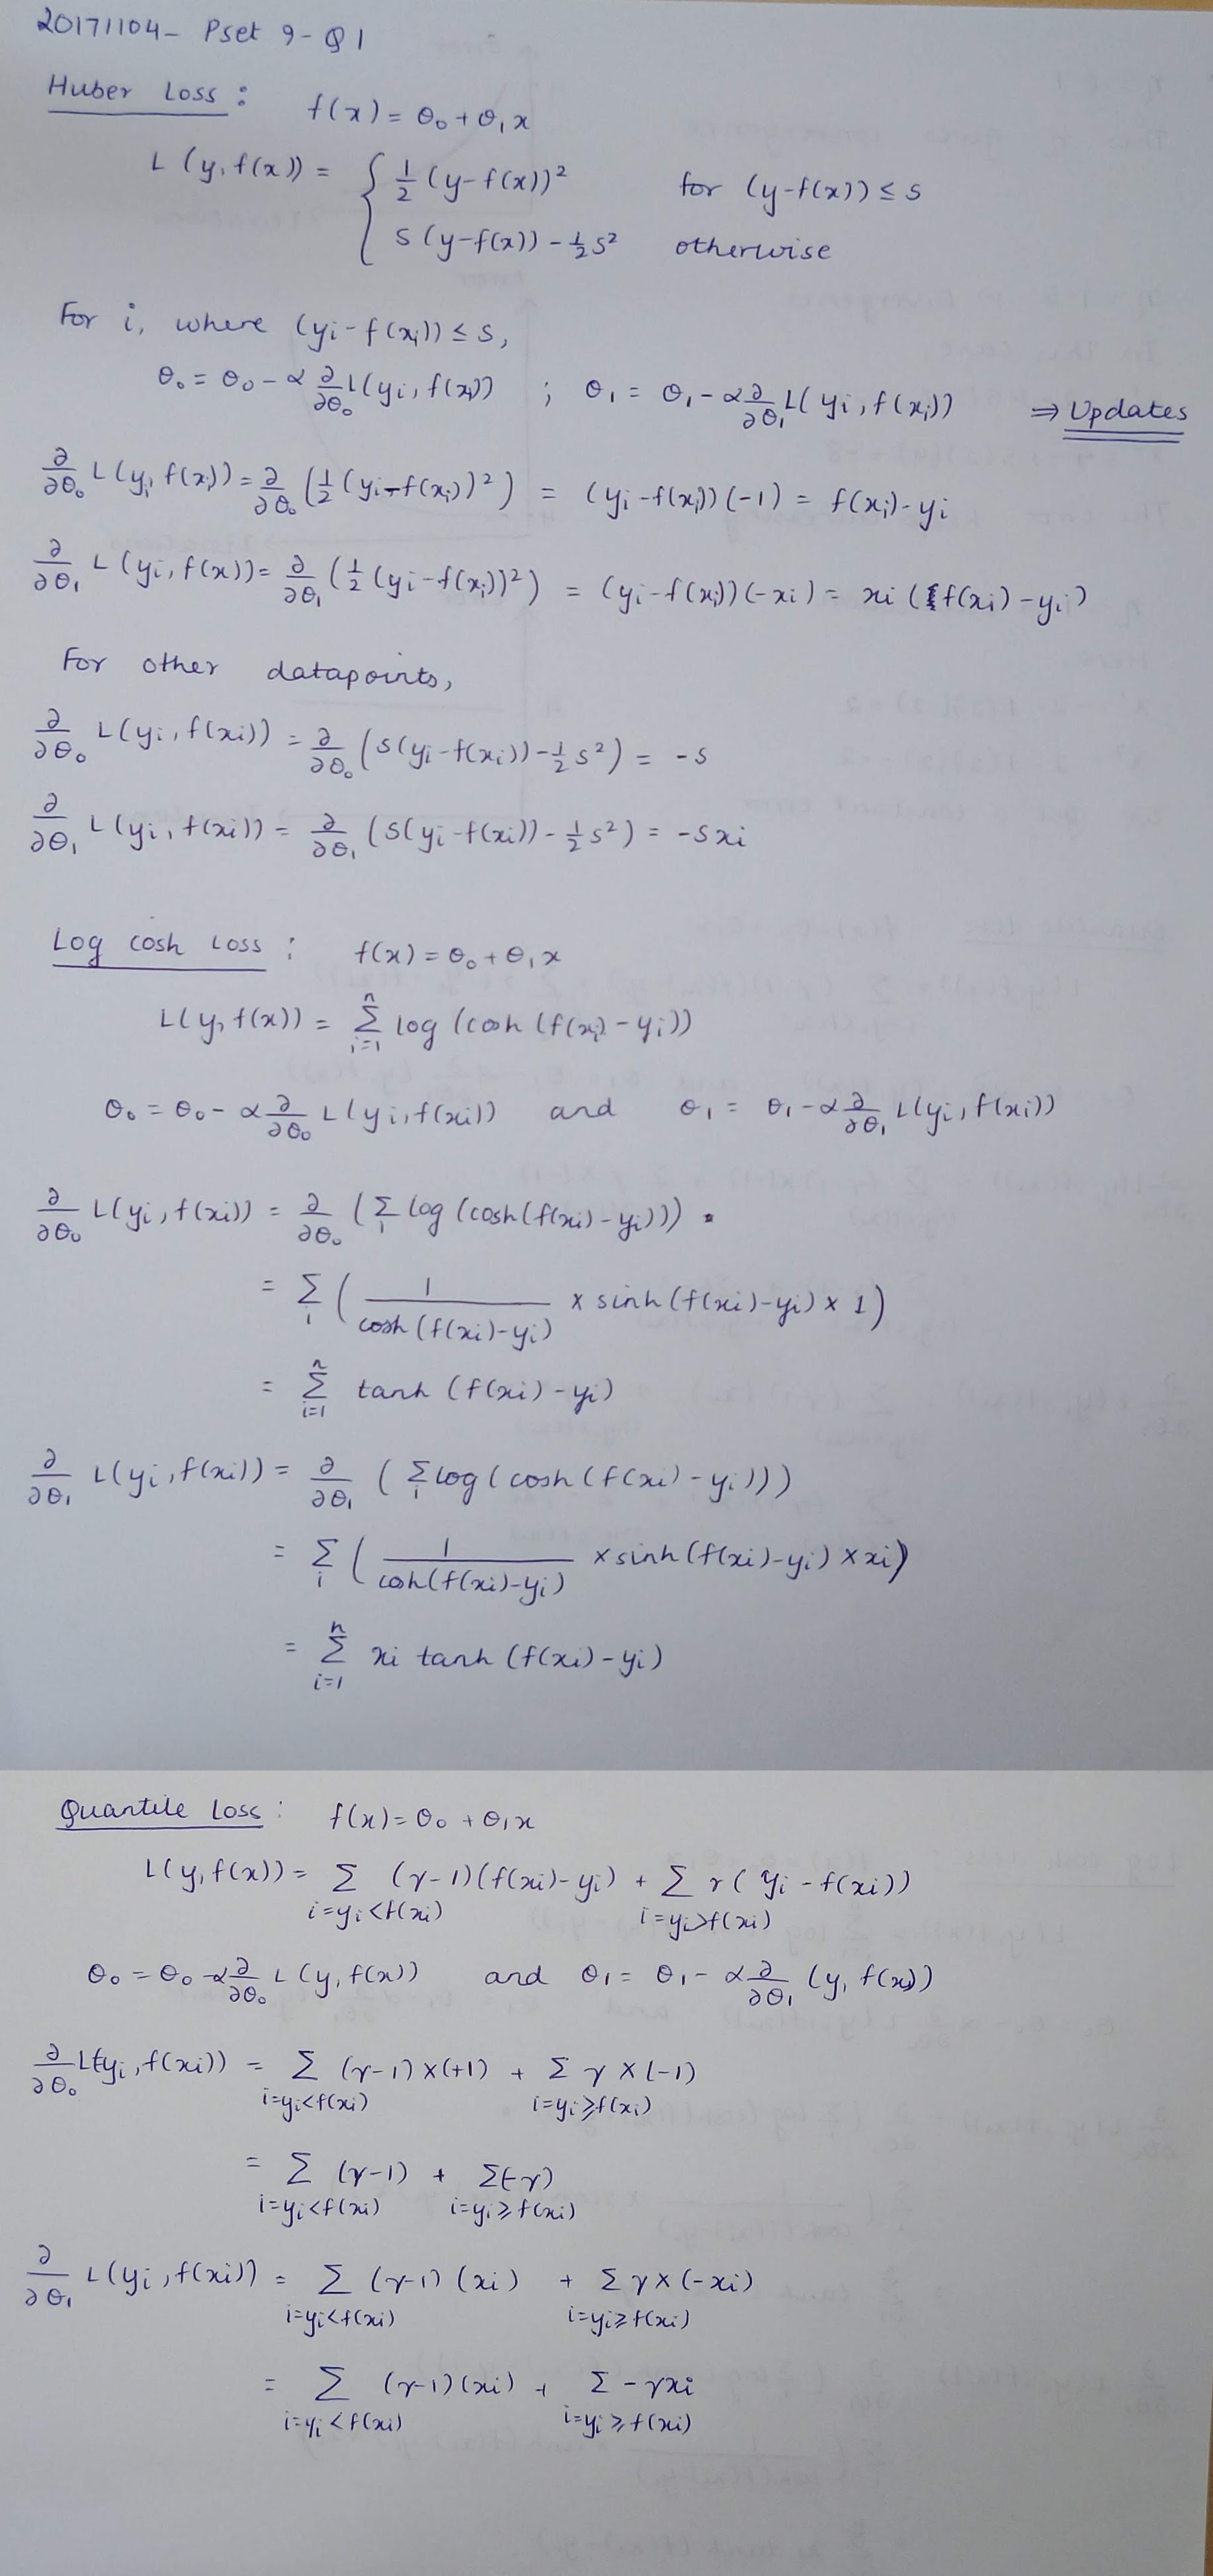 20171104- Pset 9-Q1
Huber Loss: f(x) = θ₀ + θ₁x
L(y, f(x)) = { ½ (y-f(x))² for (y-f(x)) ≤ s
s(y-f(x)) - ½s² otherwise
For i, where (yi - f(xi)) ≤ s,
θ₀ = θ₀ - α ∂/∂θ₀ L(yi, f(xi)) ; θ₁ = θ₁ - α ∂/∂θ₁ L(yi, f(xi)) ⇒ Updates
∂/∂θ₀ L(yi, f(xi)) = ∂/∂θ₀ (½ (yi - f(xi))²) = (yi - f(xi))(-1) = f(xi) - yi
∂/∂θ₁ L(yi, f(x)) = ∂/∂θ₁ (½ (yi - f(xi))²) = (yi - f(xi))(-xi) = xi (f(xi) - yi)
For other datapoints,
∂/∂θ₀ L(yi, f(xi)) = ∂/∂θ₀ (s(yi - f(xi)) - ½s²) = -s
∂/∂θ₁ L(yi, f(xi)) = ∂/∂θ₁ (s(yi - f(xi)) - ½s²) = -sxi
Log cosh Loss: f(x) = θ₀ + θ₁x
L(y, f(x)) = Σ_{i=1}^{n} log (cosh (f(xi) - yi))
θ₀ = θ₀ - α ∂/∂θ₀ L(yi, f(xi)) and θ₁ = θ₁ - α ∂/∂θ₁ L(yi, f(xi))
∂/∂θ₀ L(yi, f(xi)) = ∂/∂θ₀ (Σ_i log (cosh(f(xi) - yi)))
= Σ_i ( 1/cosh(f(xi)-yi) × sinh(f(xi)-yi) × 1)
= Σ_{i=1}^{n} tanh (f(xi) - yi)
∂/∂θ₁ L(yi, f(xi)) = ∂/∂θ₁ (Σ_i log (cosh (f(xi) - yi)))
= Σ_i ( 1/cosh(f(xi)-yi) × sinh(f(xi)-yi) × xi)
= Σ_{i=1}^{n} xi tanh (f(xi) - yi)
Quantile Loss: f(x) = θ₀ + θ₁x
L(y, f(x)) = Σ_{i=yi<f(xi)} (γ-1)(f(xi) - yi) + Σ_{i=yi>f(xi)} γ(yi - f(xi))
θ₀ = θ₀ - α ∂/∂θ₀ L(y, f(x)) and θ₁ = θ₁ - α ∂/∂θ₁ (y, f(x))
∂/∂θ₀ L(yi, f(xi)) = Σ_{i=yi<f(xi)} (γ-1)×(+1) + Σ_{i=yi≥f(xi)} γ×(-1)
= Σ_{i=yi<f(xi)} (γ-1) + Σ_{i=yi≥f(xi)} (-γ)
∂/∂θ₁ L(yi, f(xi)) = Σ_{i=yi<f(xi)} (γ-1)(xi) + Σ_{i=yi≥f(xi)} γ×(-xi)
= Σ_{i=yi<f(xi)} (γ-1)(xi) + Σ_{i=yi≥f(xi)} -γxi